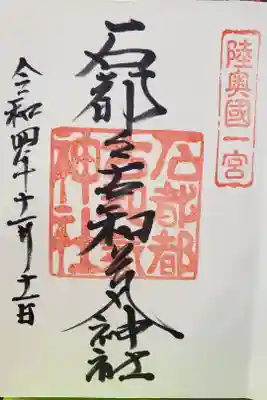 陸奥國一宮
石都々古和気神社
石都都
古和氣
神社
令和四年十一月十一日